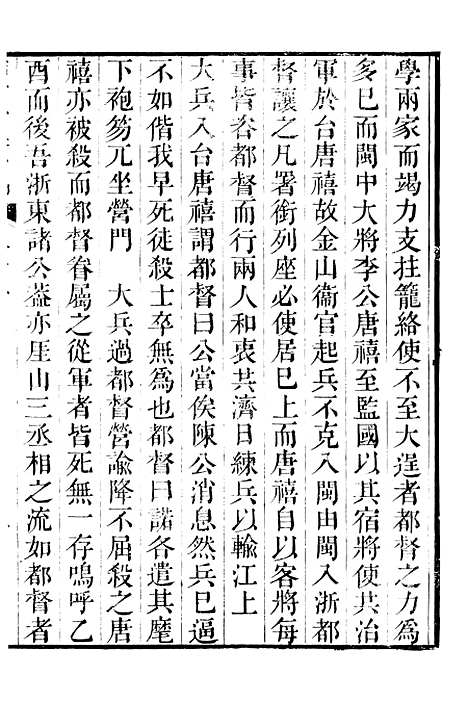 學兩家而竭力支拄籠絡使不至大逞者都督之力爲
多已而閩中大將李公唐禧至監國以其宿將使共治
軍於台唐禧故金山衞官起兵不克入閩由閩入浙都
督讓之凡署銜列座必使居已上而唐禧自以客將每
事皆咨都督而行兩人和衷共濟日練兵以輸江上
大兵入台唐禧謂都督曰公當俟陳公消息然兵已逼
不如偕我早死徒殺士卒無爲也都督曰諾各遣其麾
下袍笏兀坐營門　大兵過都督營諭降不屈殺之唐
禧亦被殺而都督眷屬之從軍者皆死無一存嗚呼乙
酉而後吾浙東諸公葢亦厓山三丞相之流如都督者